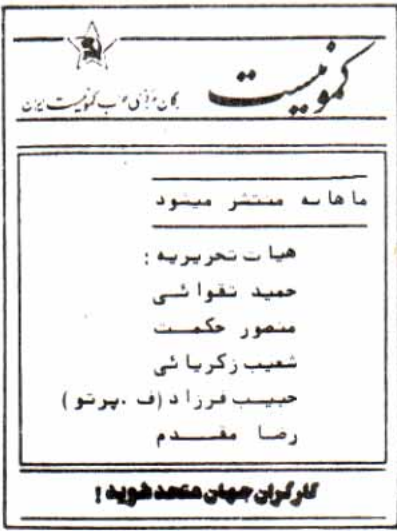 کمونیست
ارگان مرکزی حزب کمونیست ایران
ماهانه منتشر میشود
هیات تحریریه :
حمید تقوائی
منصور حکمت
شعیب زکریائی
حبیب فرزاد (ف . پرتو )
رضا مقدم
کارگران جهان متحد شوید !